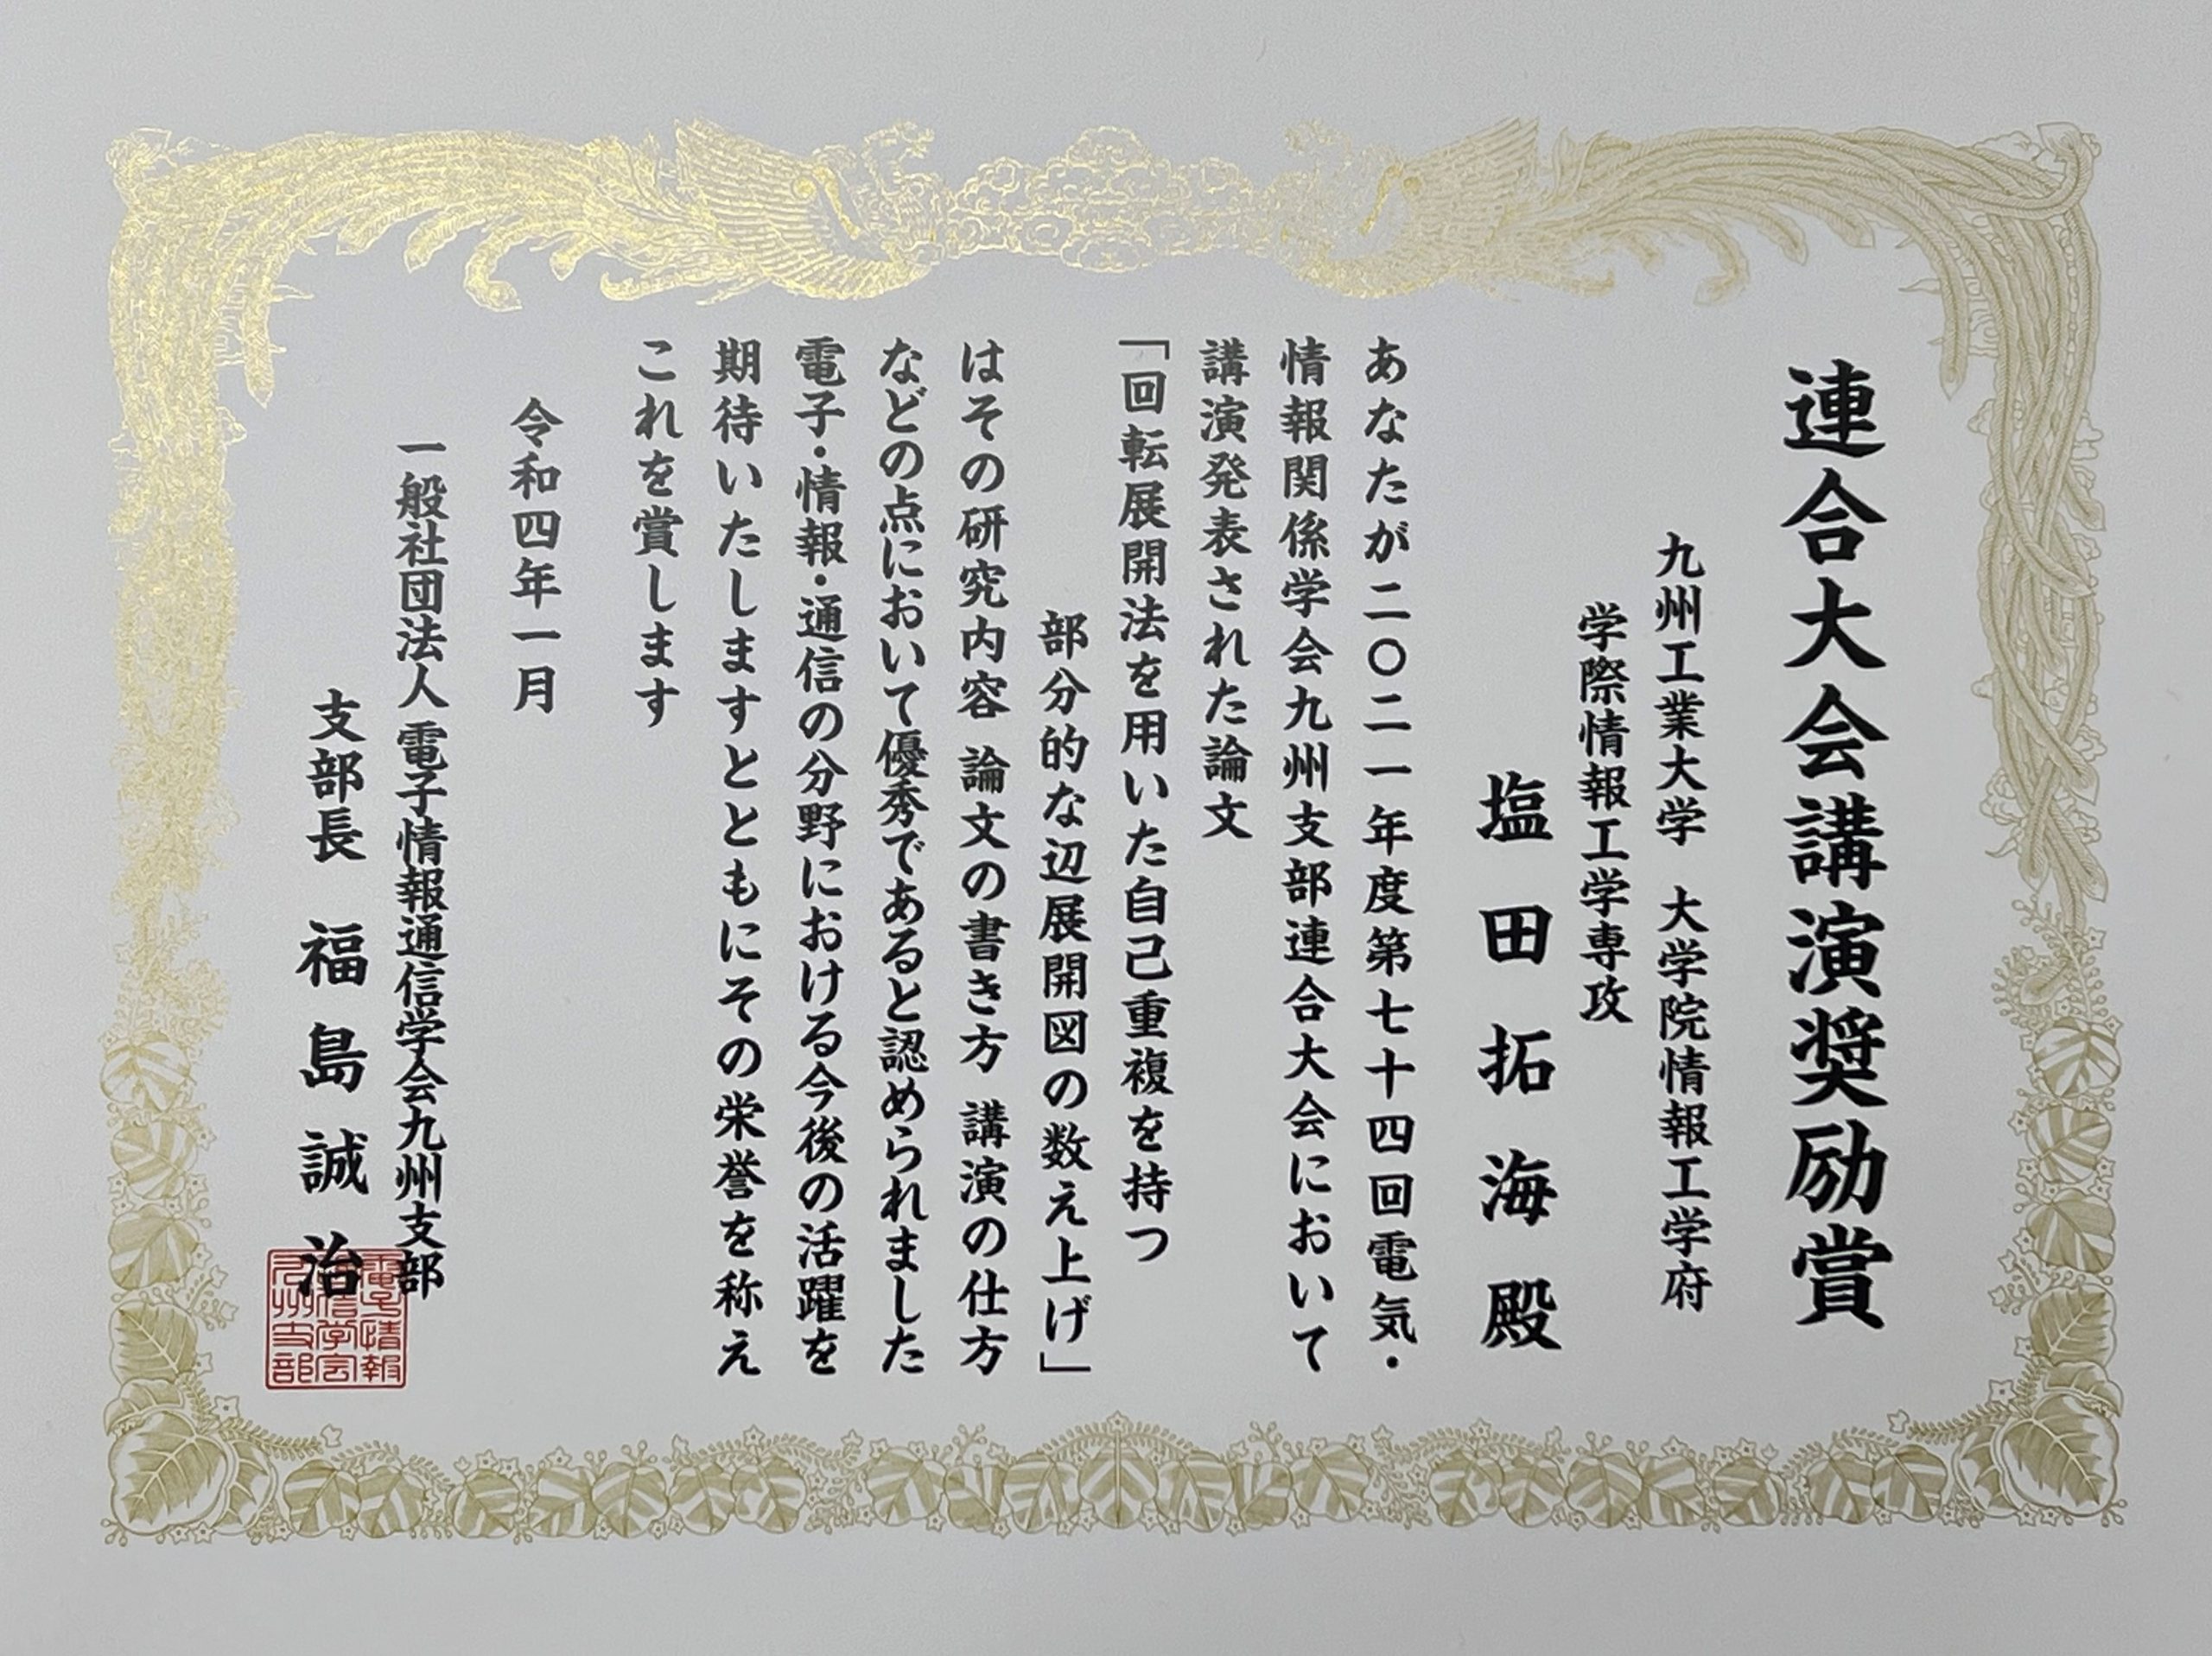 連合大会講演奨励賞
九州工業大学 大学院情報工学府
学際情報工学専攻
塩田拓海殿
あなたが二〇二一年度第七十四回電気・
情報関係学会九州支部連合大会において
講演発表された論文
「回転展開法を用いた自己重複を持つ
部分的な辺展開図の数え上げ」
はその研究内容 論文の書き方 講演の仕方
などの点において優秀であると認められました
電子・情報・通信の分野における今後の活躍を
期待いたしますとともにその栄誉を称え
これを賞します
令和四年一月
一般社団法人 電子情報通信学会九州支部
支部長 福島誠治
電子情報
通信学会
九州支部